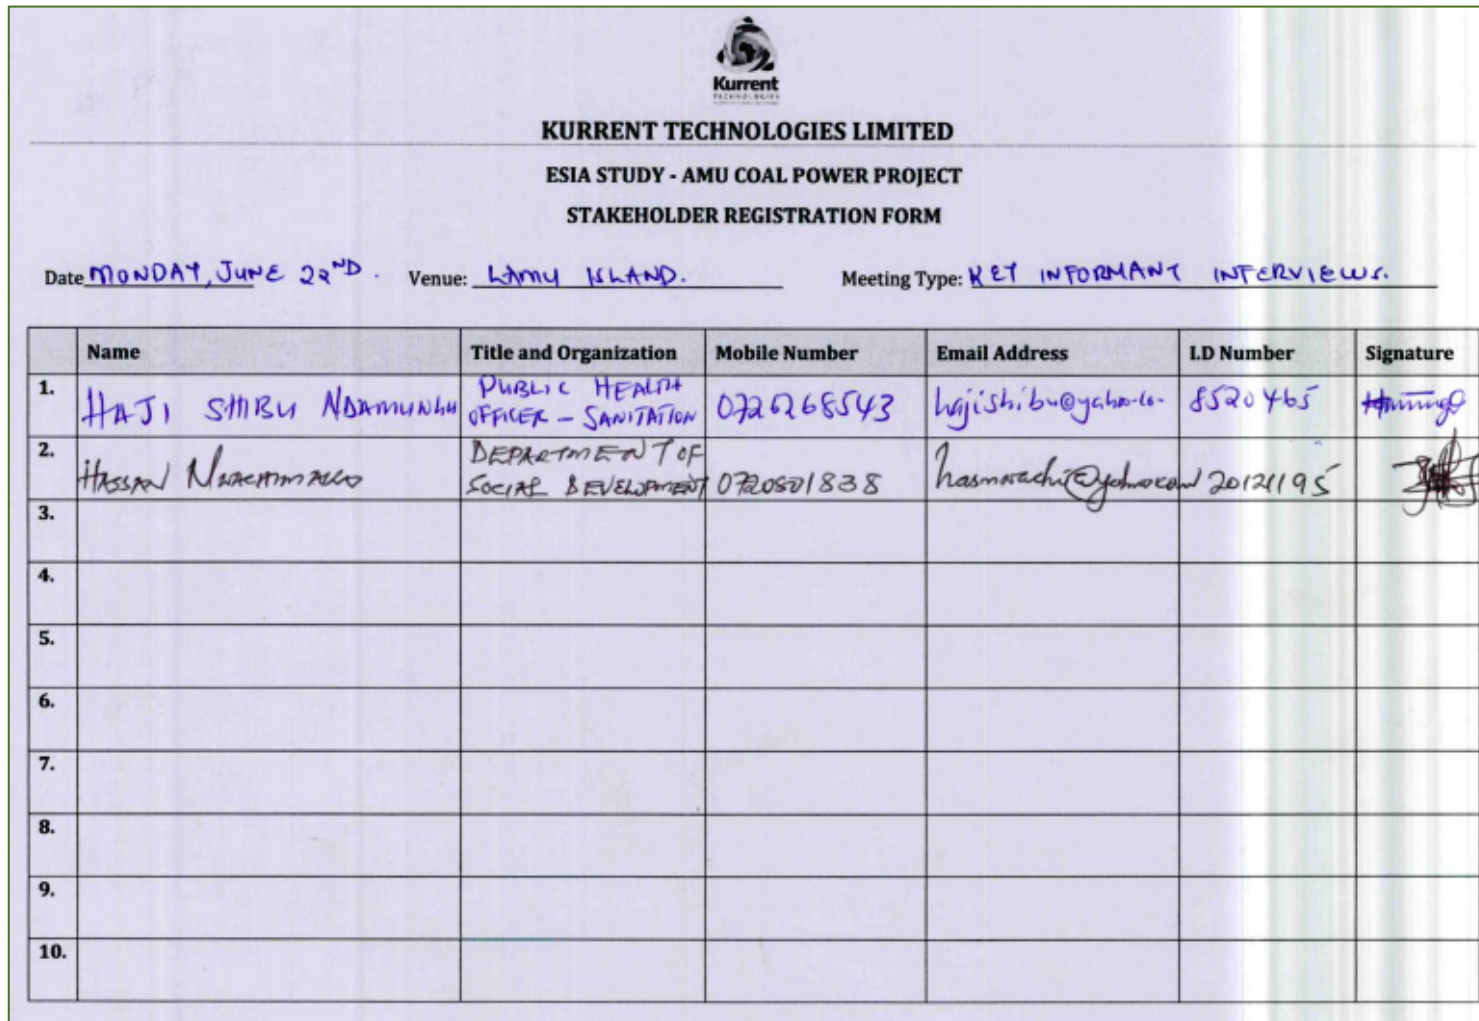 Kurrent
TECHNOLOGIES
KURRENT TECHNOLOGIES LIMITED
ESIA STUDY - AMU COAL POWER PROJECT
STAKEHOLDER REGISTRATION FORM
Date MONDAY, JUNE 22ND. Venue: LAMU ISLAND. Meeting Type: KEY INFORMANT INTERVIEWS.
Name Title and Organization Mobile Number Email Address I.D Number Signature
1. HAJI SHIBU PUBLIC HEALTH OFFICER – SANITATION 0726268543 hajishibu@yahoo.co. 8520465
2. HASSAN DEPARTMENT OF SOCIAL DEVELOPMENT 0720501838 20121195
3.
4.
5.
6.
7.
8.
9.
10.